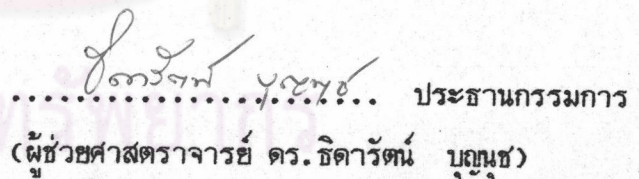 ธิดารัตน์ บุญนุช
........................ ประธานกรรมการ
(ผู้ช่วยศาสตราจารย์ ดร.ธิดารัตน์ บุญนุช)